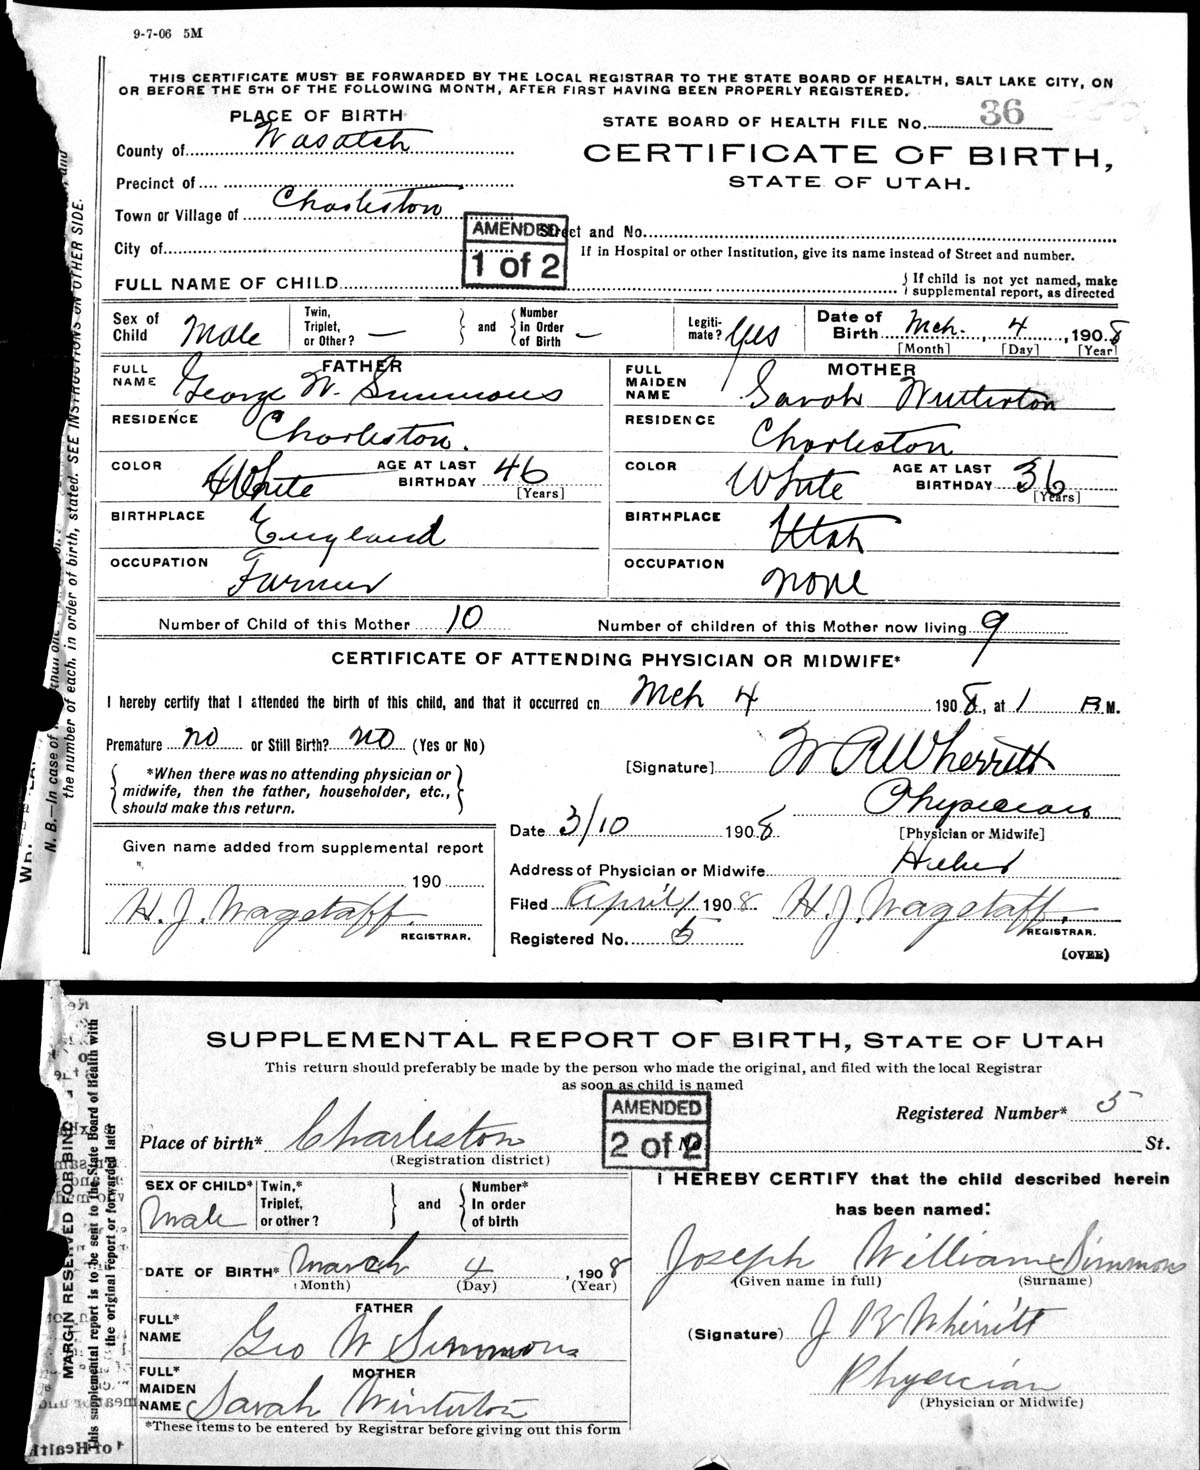 9-7-06 5M
THIS CERTIFICATE MUST BE FORWARDED BY THE LOCAL REGISTRAR TO THE STATE BOARD OF HEALTH, SALT LAKE CITY, ON
OR BEFORE THE 5TH OF THE FOLLOWING MONTH, AFTER FIRST HAVING BEEN PROPERLY REGISTERED.
PLACE OF BIRTH
STATE BOARD OF HEALTH FILE No. 36
County of Wasatch
CERTIFICATE OF BIRTH,
STATE OF UTAH.
Precinct of
Town or Village of Charleston
AMENDED
1 of 2
Street and No.
City of
If in Hospital or other Institution, give its name instead of Street and number.
FULL NAME OF CHILD
If child is not yet named, make
supplemental report, as directed
Sex of Child Male
Twin, Triplet, or Other? —
and
Number in Order of Birth —
Legiti-mate? Yes
Date of Birth Mch. 4, 1908
[Month] [Day] [Year]
FATHER
FULL NAME George W. Simmons
MOTHER
FULL MAIDEN NAME Sarah Winterton
RESIDENCE Charleston.
RESIDENCE Charleston
COLOR White
AGE AT LAST BIRTHDAY 46
[Years]
COLOR White
AGE AT LAST BIRTHDAY 36
[Years]
BIRTHPLACE England
BIRTHPLACE Utah
OCCUPATION Farmer
OCCUPATION none
Number of Child of this Mother 10
Number of children of this Mother now living 9
CERTIFICATE OF ATTENDING PHYSICIAN OR MIDWIFE*
I hereby certify that I attended the birth of this child, and that it occurred on Mch 4 1908, at 1 P.M.
Premature no or Still Birth? no (Yes or No)
*When there was no attending physician or
midwife, then the father, householder, etc.,
should make this return.
[Signature] W R Wherritt
Physician
[Physician or Midwife]
Date 3/10 1908
Given name added from supplemental report
190
H. J. Wagstaff
REGISTRAR.
Address of Physician or Midwife Heber
Filed April 1 1908 H. J. Wagstaff,
REGISTRAR.
Registered No. 5
(OVER)
the number of each, in order of birth, stated. SEE INSTRUCTIONS ON OTHER SIDE.
N. B.—In case of
SUPPLEMENTAL REPORT OF BIRTH, STATE OF UTAH
This return should preferably be made by the person who made the original, and filed with the local Registrar
as soon as child is named
AMENDED
2 of 2
Registered Number* 5
Place of birth* Charleston
(Registration district)
No. St.
SEX OF CHILD* Male
Twin,* Triplet, or other?
and
Number* In order of birth
I HEREBY CERTIFY that the child described herein
has been named:
Joseph William Simmons
(Given name in full) (Surname)
DATE OF BIRTH* March 4, 1908
(Month) (Day) (Year)
FATHER
FULL* NAME Geo W Simmons
(Signature) J R Wherritt
Physician
(Physician or Midwife)
MOTHER
FULL* MAIDEN NAME Sarah Winterton
*These items to be entered by Registrar before giving out this form
MARGIN RESERVED FOR BIND
This supplemental report is to be sent to the State Board of Health with
the original report or forwarded later